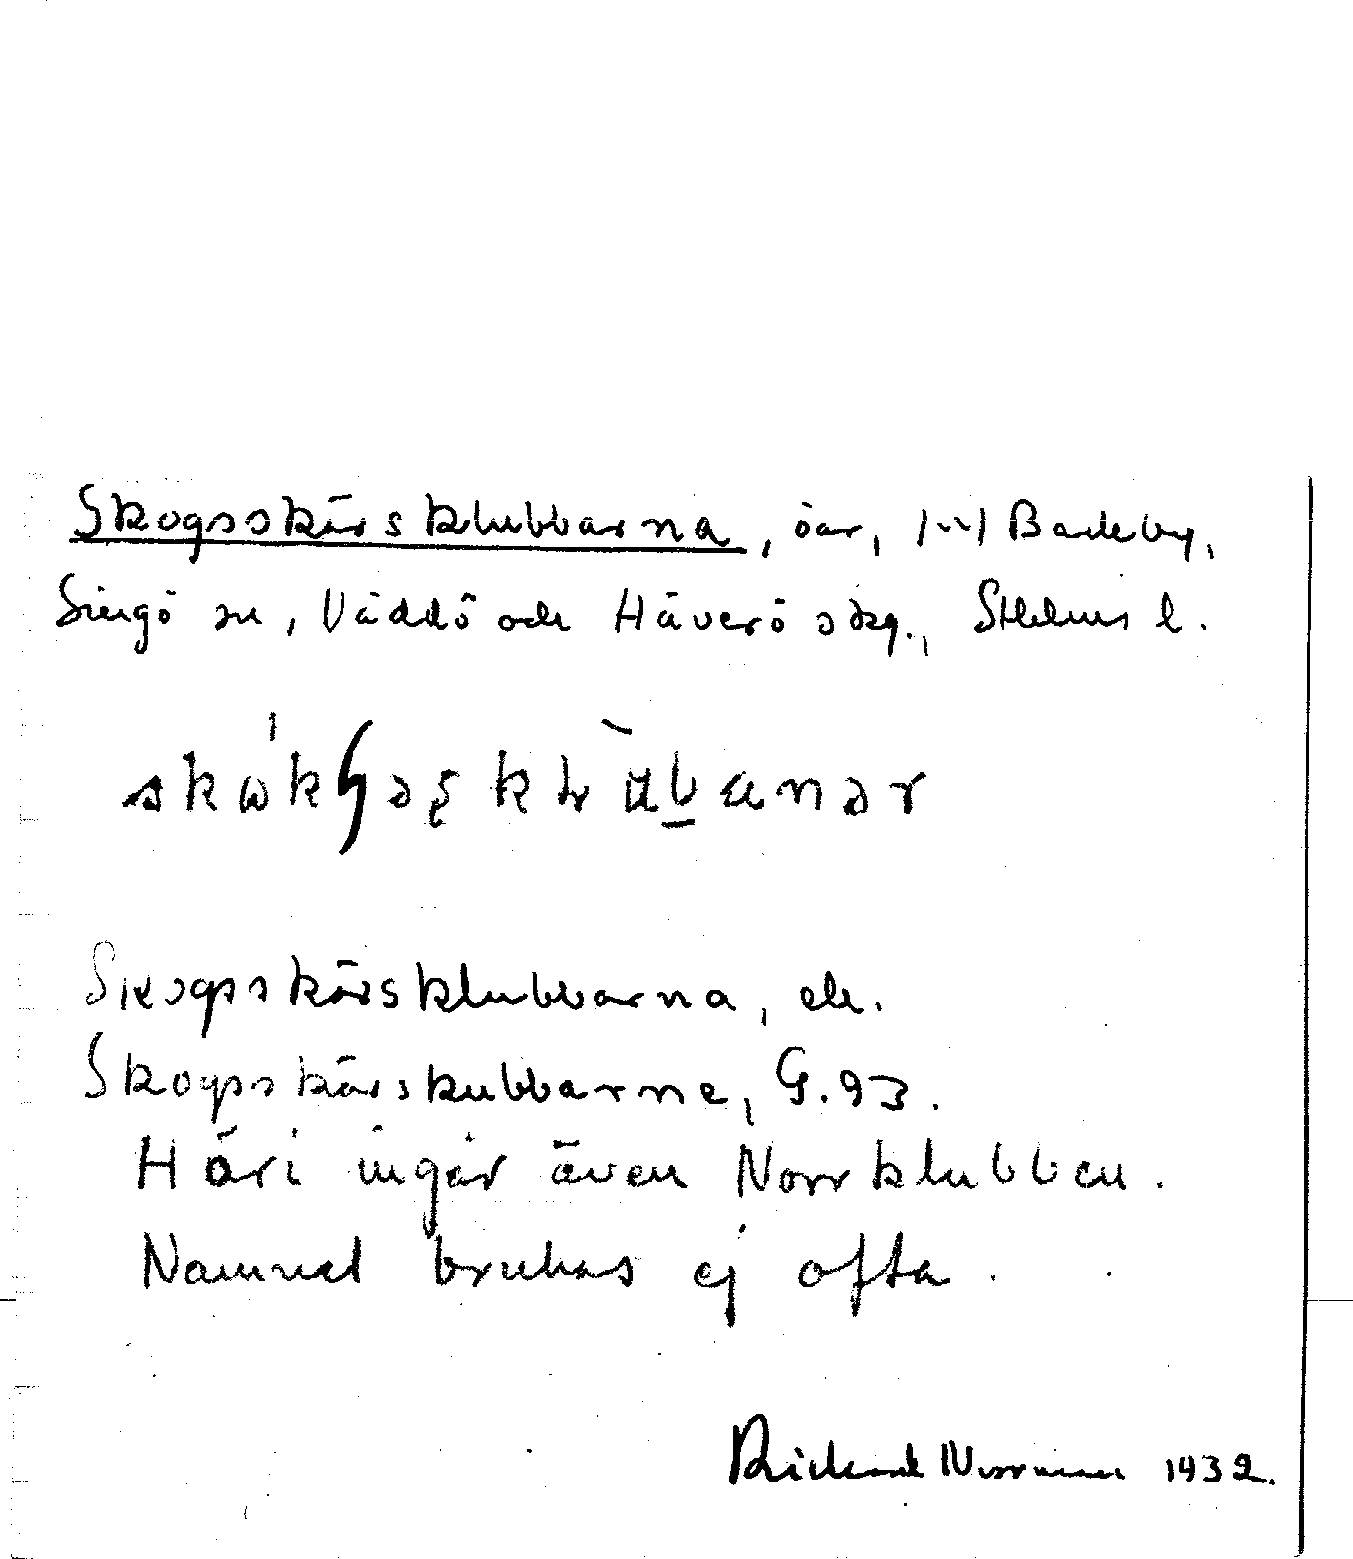 Skogsskärsklubbarna, öar, Backby,
Singö sn, Väddö och Häverö skg., Sthlms l.
Skogsskärsklubbarna, ek.
Skogsskärskubbarne, G.93.
Häri ingår även Norrklubben.
Namnet brukas ej ofta.
Rickard Norrman 1932.